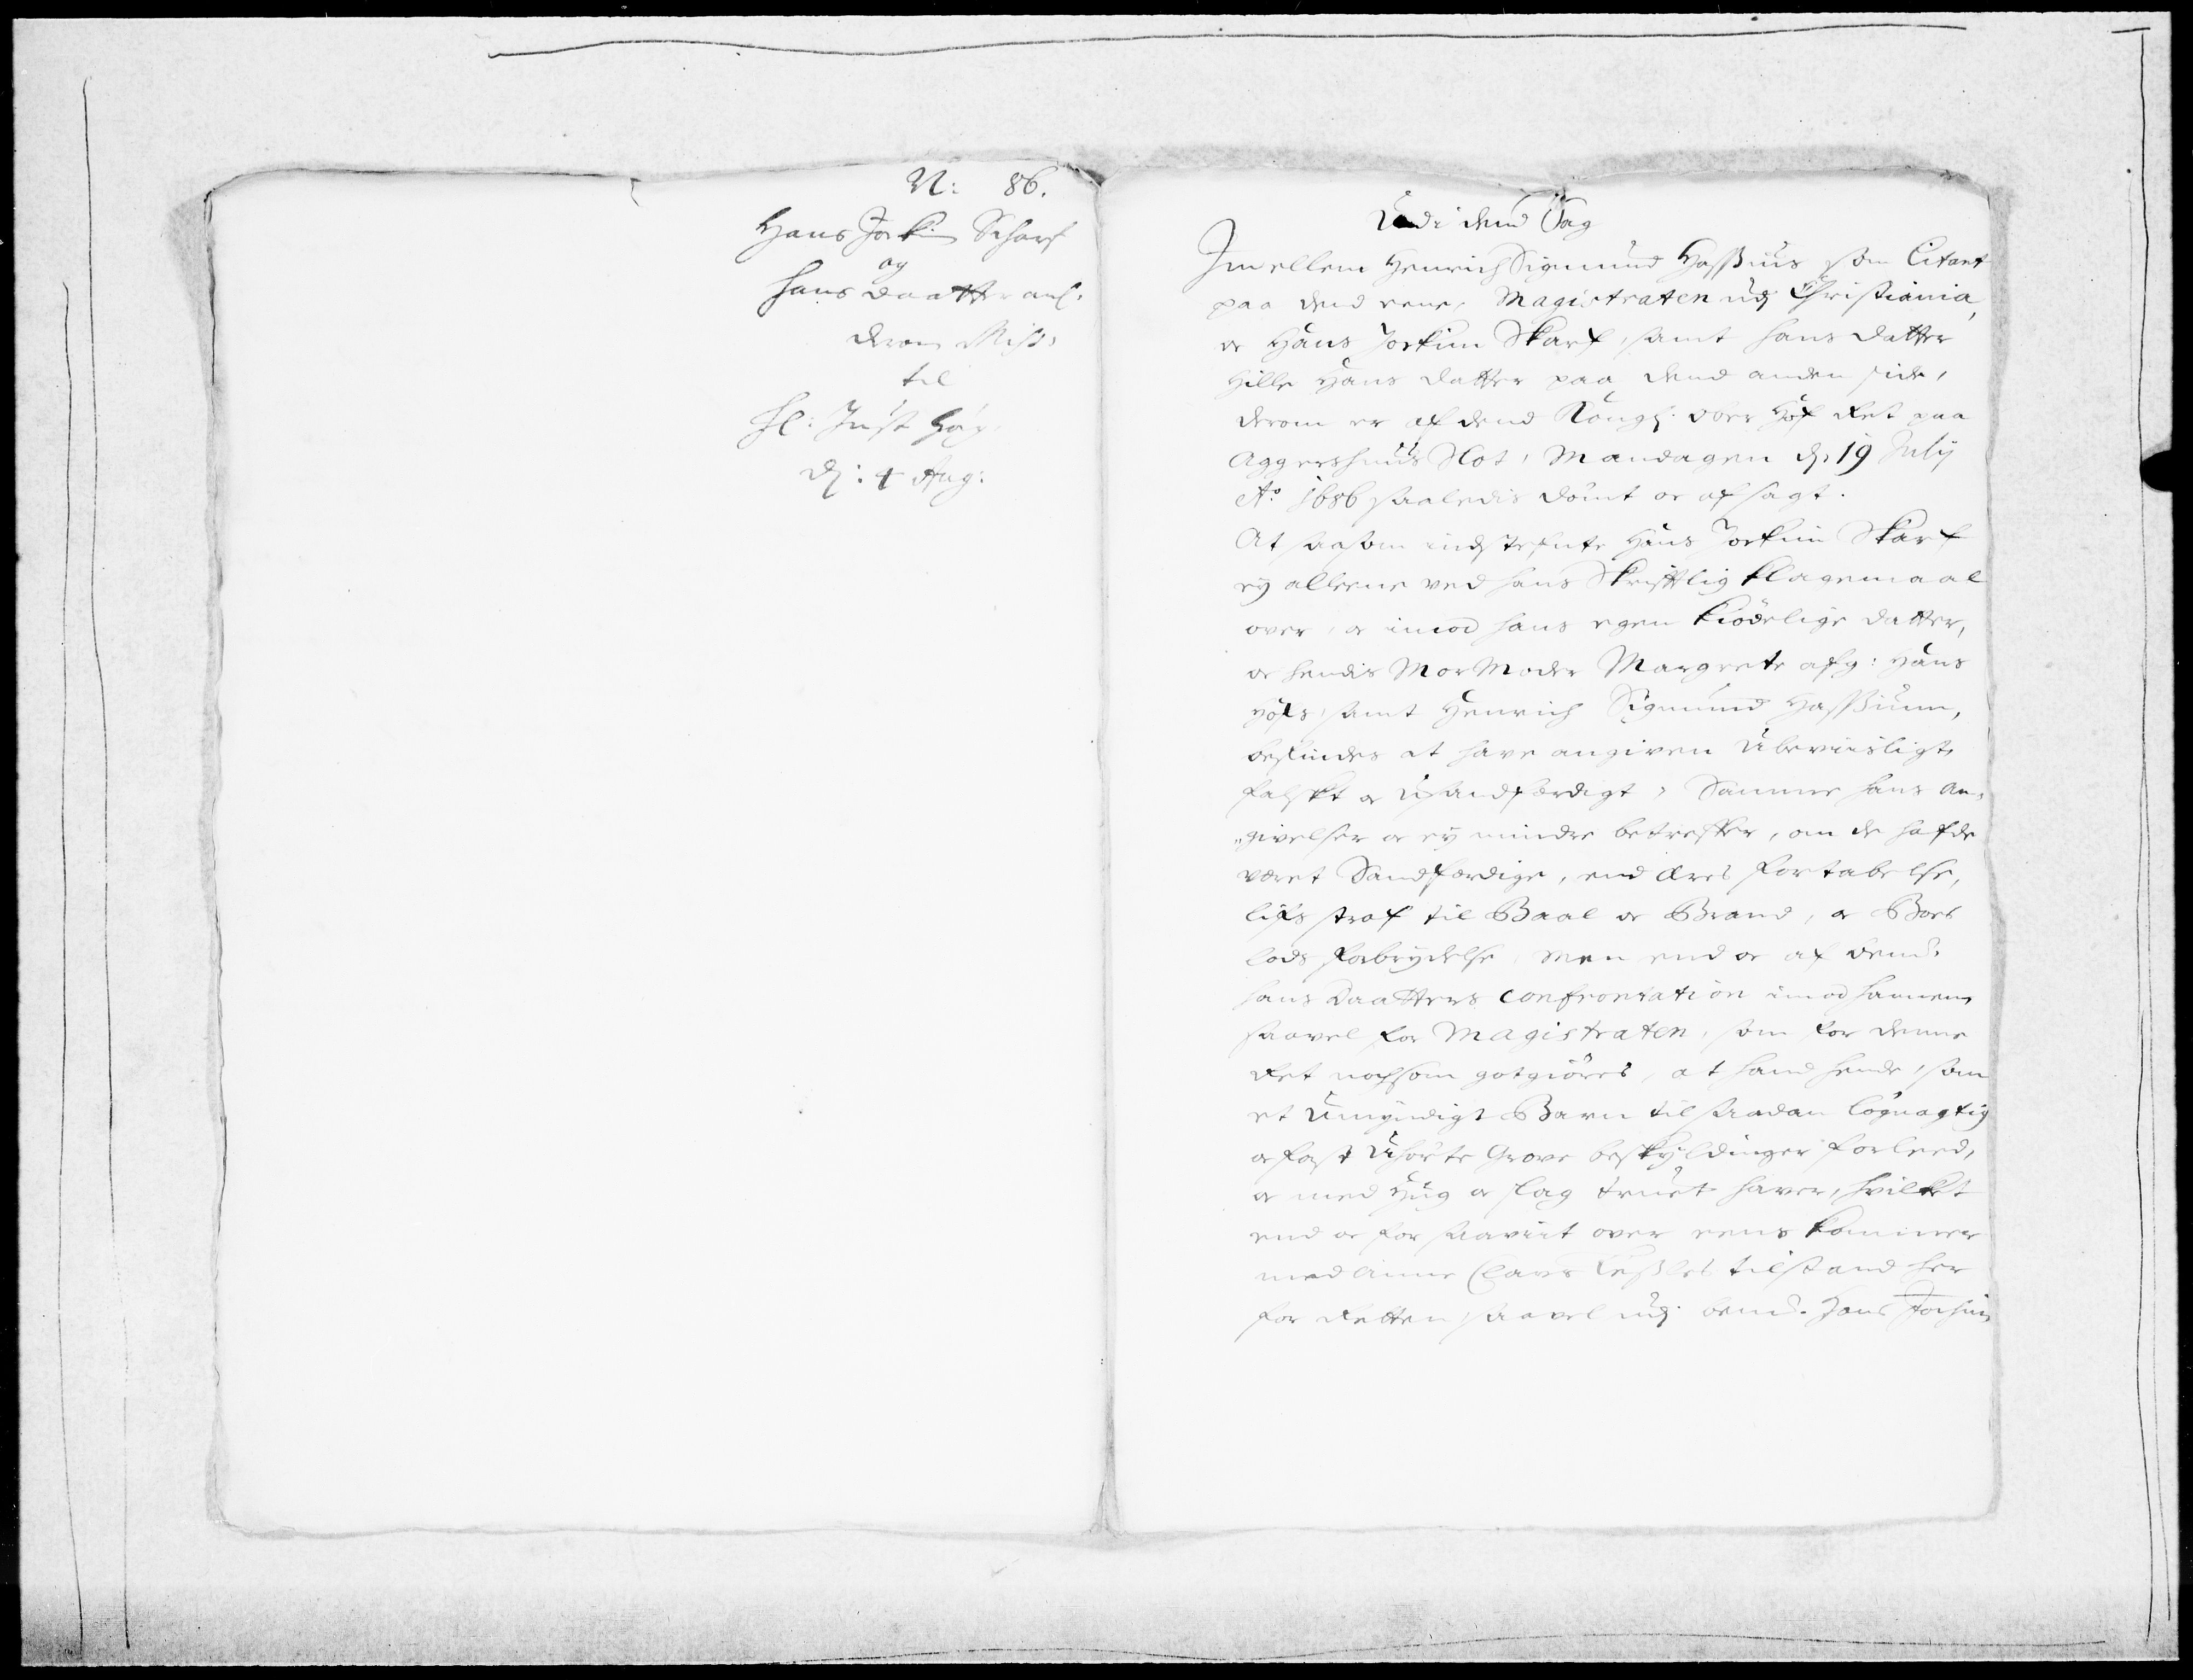 N: 86.
Hans Jockim Scharf
og
hans Daatter anl.
deom Miss:
til
H: Just Høg
d: 4 Aug:
Udi dend Sag
Imellem Henrich Sigmund Hassius som Citant
paa dend eene, Magistraten udj Christiania,
oc Hans Jockim Skarf, samt hans datter
Hille Hans datter paa dend anden side,
derom er af dend Kongl. Ober Hof Ret paa
Aggershuus Slot, Mandagen d. 19 July
Ao 1686 saaledis dömt oc afsagt.
At saasom indstefnte Hans Jockim Skarf
ey alleene ved hans Skriftlig klagemaal
over, oc imod hans egen kiödelige datter,
oc hendis MorModer Margrete afg: Hans
Höfs, samt Henrich Sigmund Hassium,
befindes at have angiven Ubeviisligt
falskt oc Usandfærdigt, Samme hans An-
givelser oc ey mindre betreffer, om de hafde
været Sandfærdige, end Æres fortabelse,
lifs straf til Baal oc Brand, oc Boes
lods forbrydelse, Men end oc af bemt.
hans Daatters confrontation imod hannem
saavel for Magistraten, som for denne
Ret nochsom gotgiöres, at hand hende, som
et Umyndigt Barn til saadan lögnagtig
oc fast Uhörte Grove beskyldinger forleed,
oc med Hug oc slag truet haver, hvilket
end oc for saaviit over eens kommer
med Anne Claus tilstand her
for Retten saavel udj bemt. Hans Jochim